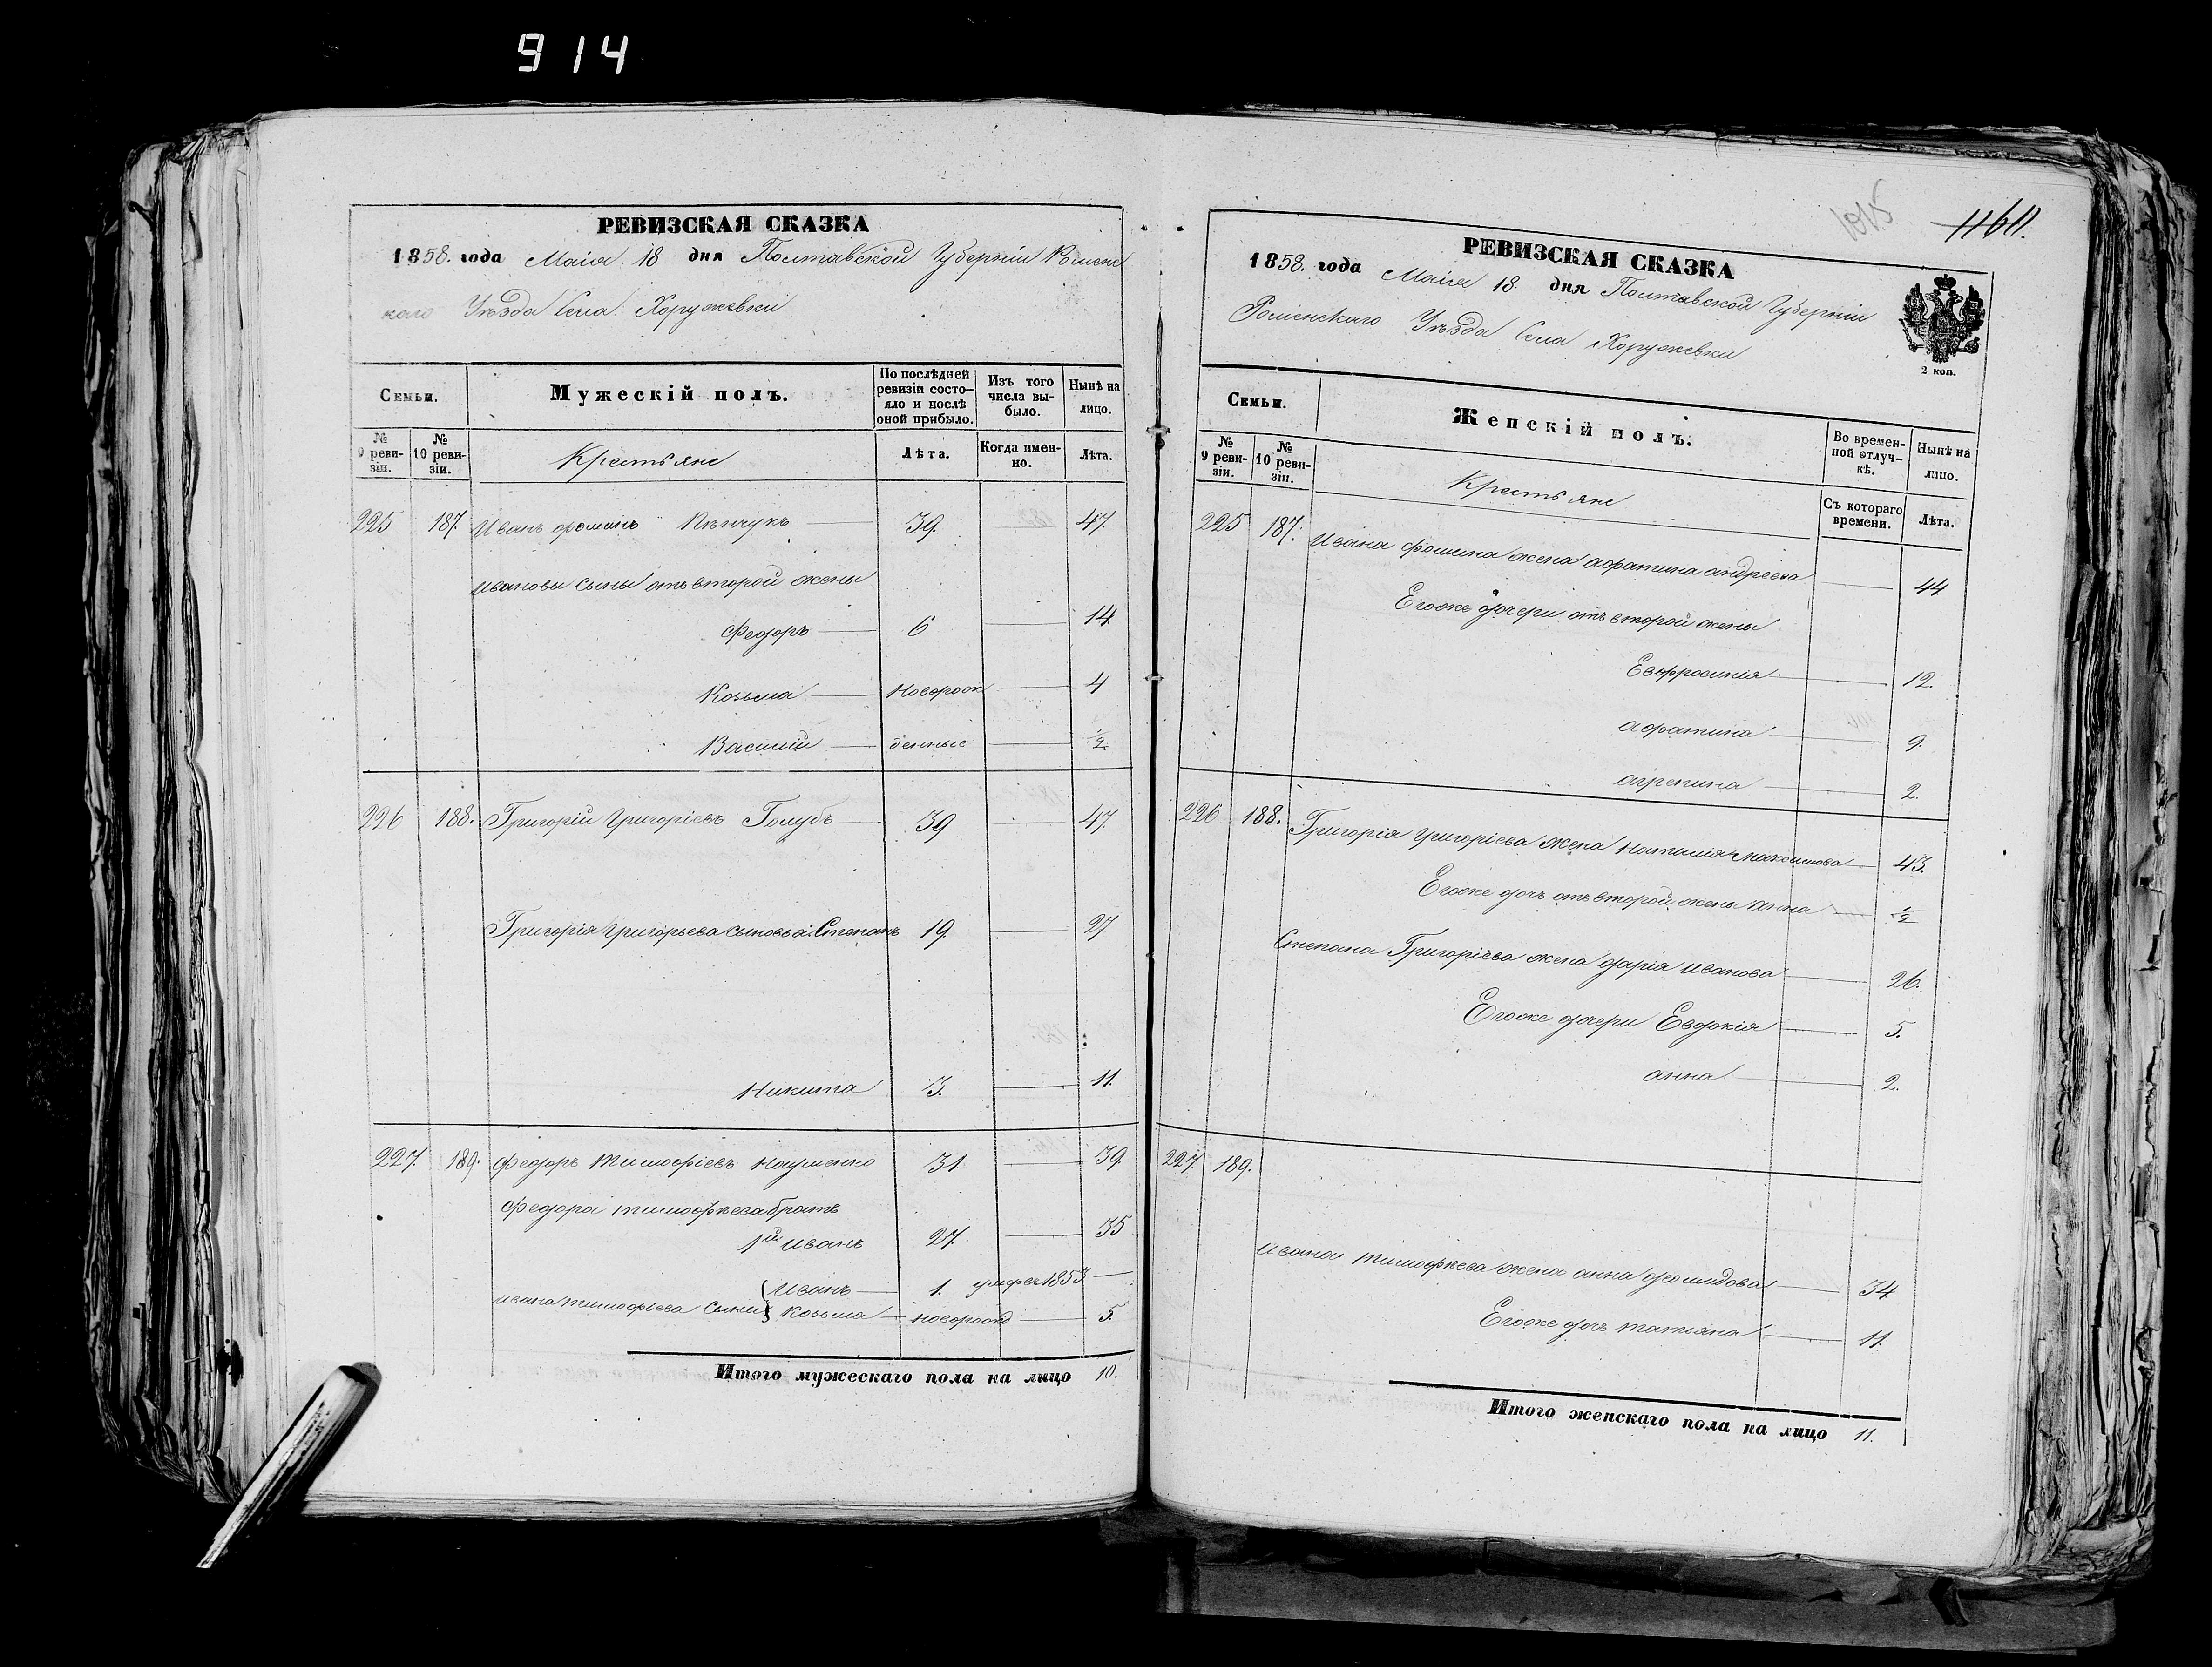 914
РЕВИЗСКАЯ СКАЗКА
1858. года Маія 18 дня Полтавской Губерніи Ромен
каго Уѣзда Села Хоружевки
Семьи.
Мужескій полъ.
По послѣдней ревизіи состо-яло и послѣ оной прибыло.
Изъ того числа вы-было.
Нынѣ на лицо.
№ 9 реви-зіи.
№ 10 реви-зіи.
Крестьяне
Лѣта.
Когда имен-но.
Лѣта.
225 187. Иванъ Фоминъ 39. 47.
Ивановы сыны отъ второй жены
Федоръ 6 14.
Козьма новорож 4
Василій денные ½
226 188. Григорій Григоріевъ Голубъ 39 47.
Григорія Григорьева сыновья: Степанъ 19. 27
Никита 3. 11.
227. 189. Федоръ Тимофіевъ Науменко 31. 39.
Федора Тимофѣева братъ
1й Иванъ 27. 35
Ивана Тимофіева сыны { Иванъ 1. умре въ 1853.
Козьма новорожд 5.
Итого мужескаго пола на лицо 10.
1015
1160.
РЕВИЗСКАЯ СКАЗКА
1858. года Маія 18 дня Полтавской Губерніи
Роменскаго Уѣзда Села Хоружевки
2 коп.
Семьи.
Женскій полъ.
Во времен-ной отлуч-кѣ.
Нынѣ на лицо.
№ 9 реви-зіи.
№ 10 реви-зіи.
Крестьяне
Съ котораго времени.
Лѣта.
225 187. Ивана Фомина жена Афатина андреева 44
Его же дочери отъ второй жены
Евфросинія 12.
Афатина 9.
агрепина 2.
226 188. Григорія Григоріева жена Наталія Максимова 43.
Его же дочь отъ второй жены Анна ½
Степана Григоріева жена Дарія Иванова 26.
Его же дочери Евдокія 5.
анна 2.
227. 189.
Ивана Тимофѣева жена анна 34
Его же дочь татьяна 11.
Итого женскаго пола на лицо 11.